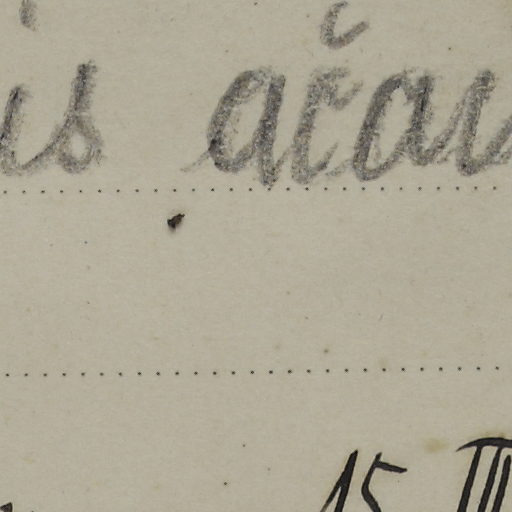 is ačau
15 III